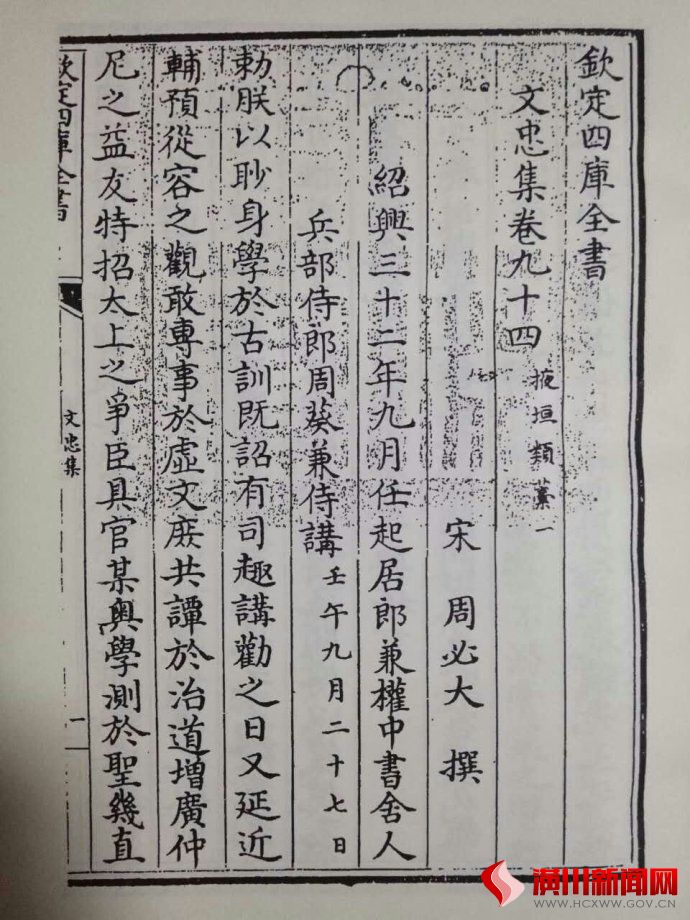 欽定四庫全書
文忠集卷九十四 掖垣類藁一
宋 周必大 撰
紹興三十二年九月任起居郎兼權中書舍人
兵部侍郎周葵兼侍講 壬午九月二十七日
勅朕以眇身學於古訓既詔有司趣講勸之日又延近
輔預從容之觀敢專事於虛文庻共譚於治道增廣仲
尼之益友特招太上之爭臣具官某奥學測於聖幾直
欽定四庫全書
文忠集
一
潢川新闻网
WWW.HCXWW.GOV.CN